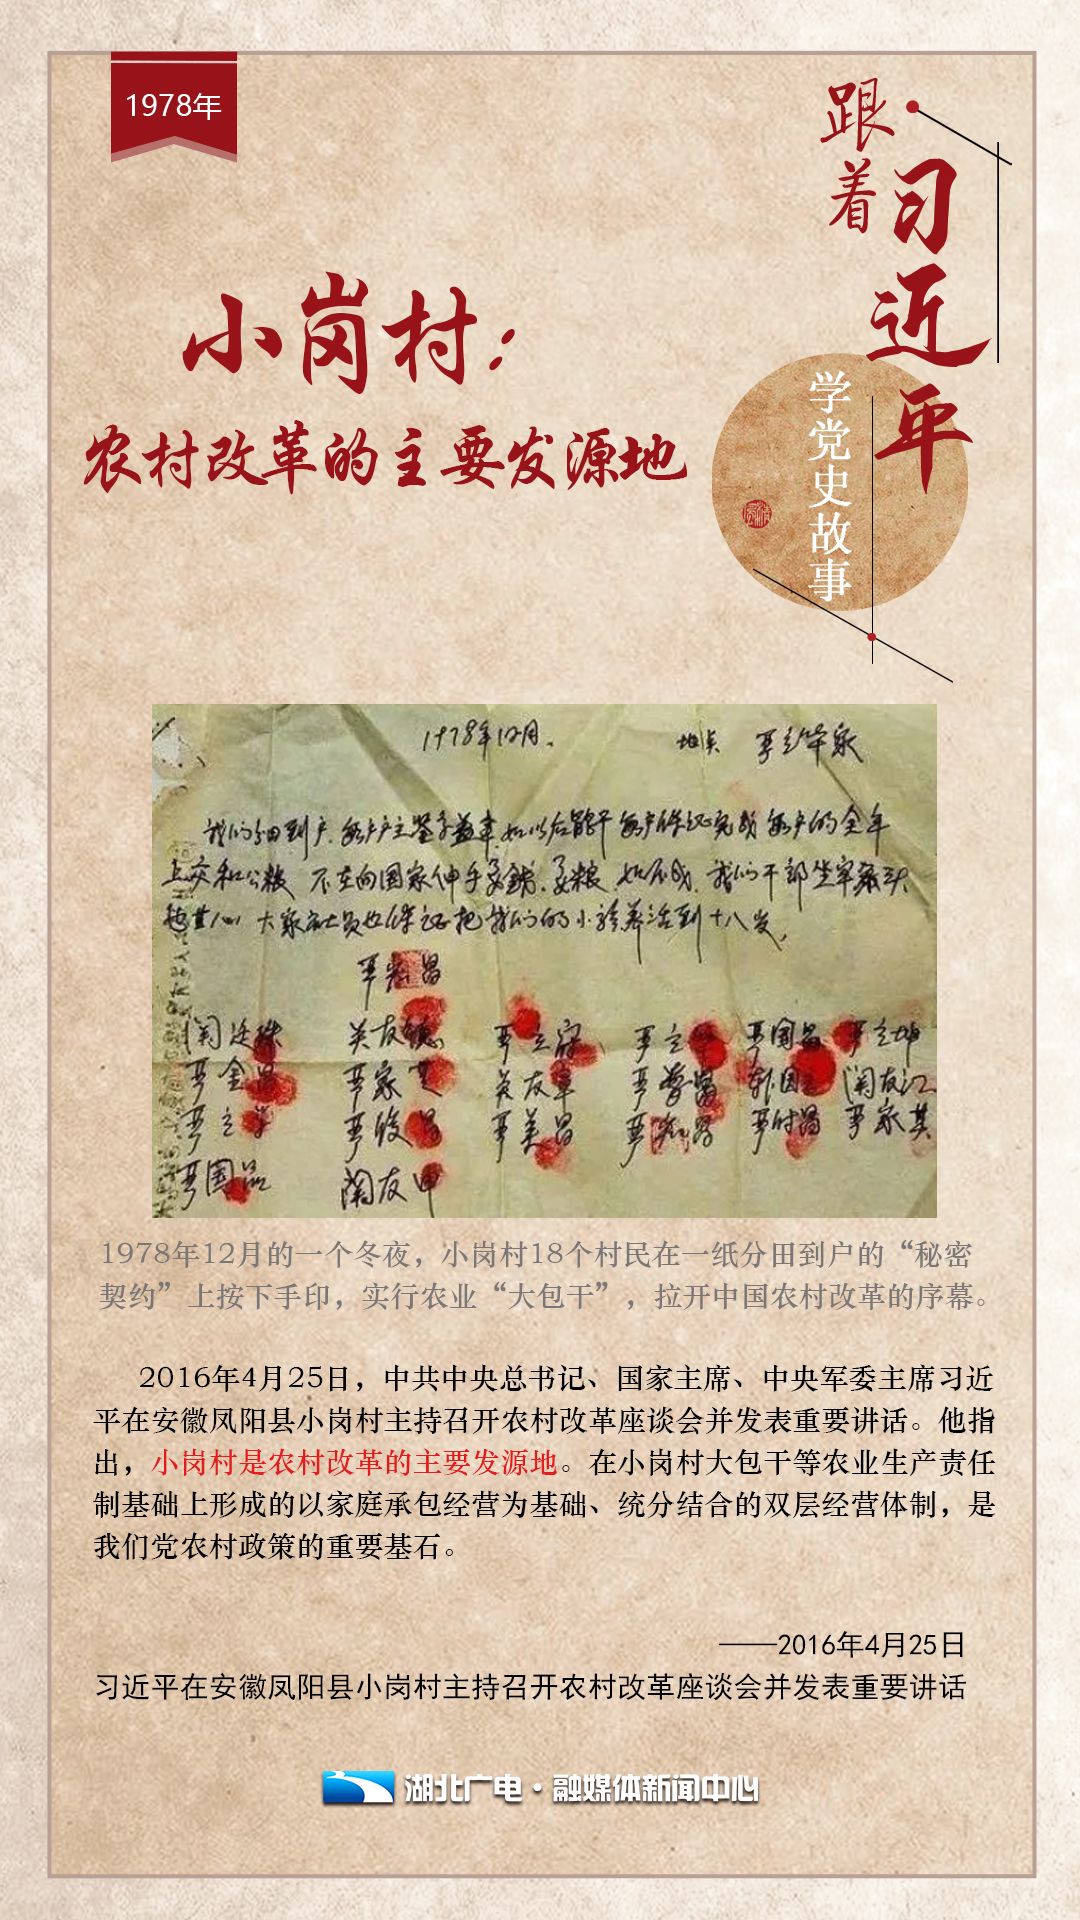 1978年
跟着
习近平
学党史故事
小岗村：
农村改革的主要发源地
1978年12月、 地点 严立华家
我们分田到户，每户户主签字盖章，如以后能干，每户保证完成每户的全年
上交和公粮，不在向国家伸手要钱、要粮，如不成，我们干部坐牢杀头
也甘心，大家社员也保证把我们的小孩养活到十八岁，
严宏昌
关廷珠 关友德 严立符 严立华 严国昌 严立坤
严金昌 严家芝 关友章 严学昌 韩国云 关友江
严立学 严俊昌 严美昌 严宏昌 严付昌 严家其
严国品 关友申
1978年12月的一个冬夜，小岗村18个村民在一纸分田到户的“秘密
契约”上按下手印，实行农业“大包干”，拉开中国农村改革的序幕。
2016年4月25日，中共中央总书记、国家主席、中央军委主席习近
平在安徽凤阳县小岗村主持召开农村改革座谈会并发表重要讲话。他指
出，小岗村是农村改革的主要发源地。在小岗村大包干等农业生产责任
制基础上形成的以家庭承包经营为基础、统分结合的双层经营体制，是
我们党农村政策的重要基石。
——2016年4月25日
习近平在安徽凤阳县小岗村主持召开农村改革座谈会并发表重要讲话
湖北广电·融媒体新闻中心